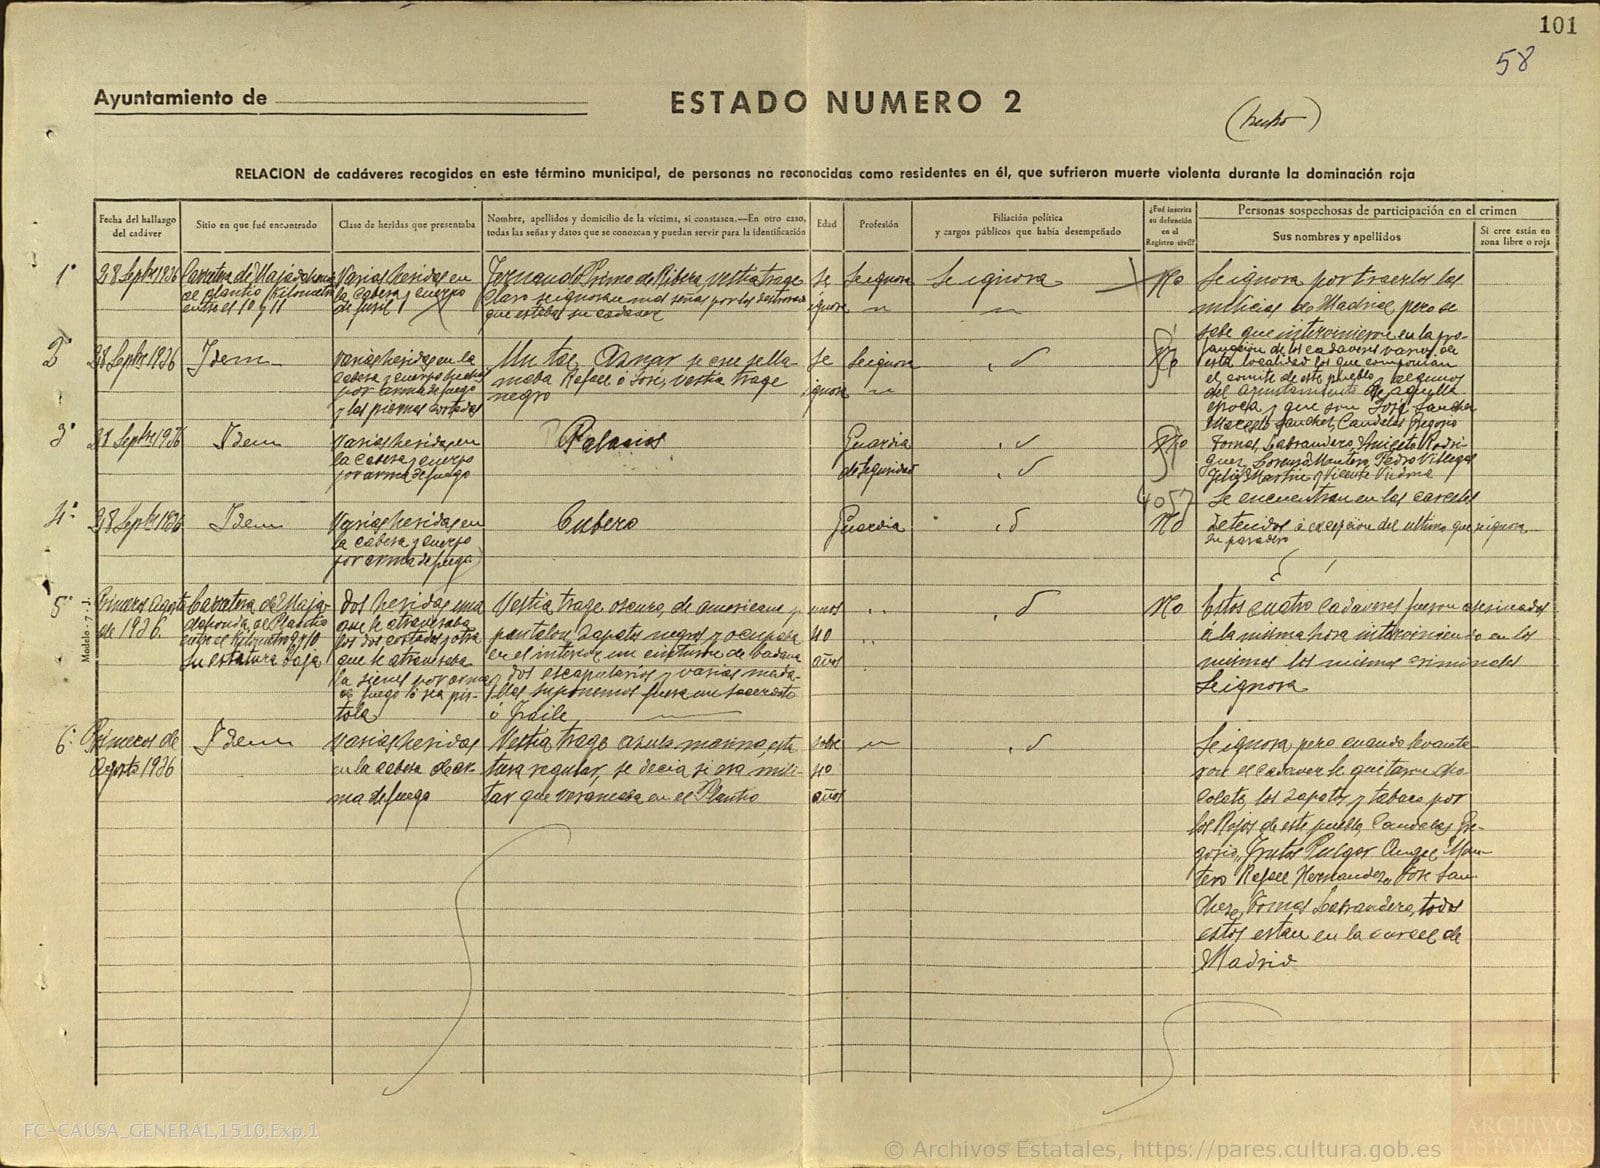 101
58
Ayuntamiento de
ESTADO NUMERO 2
(hecho)
RELACION de cadáveres recogidos en este término municipal, de personas no reconocidas como residentes en él, que sufrieron muerte violenta durante la dominación roja
Fecha del hallazgo
del cadáver
Sitio en que fué encontrado
Clase de heridas que presentaba
Nombre, apellidos y domicilio de la víctima, si constasen.—En otro caso,
todas las señas y datos que se conozcan y puedan servir para la identificación
Edad
Profesión
Filiación política
y cargos públicos que había desempeñado
¿Fué inscrita
su defunción
en el
Registro civil?
Personas sospechosas de participación en el crimen
Sus nombres y apellidos
Si cree están en
zona libre o roja
1º
28 Septbre 1936
Carretera de Majadahonda
al Plantio Kilometro
entre el 10 y 11
Varias heridas en
la cabeza y cuerpo
de fusil
Fernando Primo de Ribera vestia trage
claro se ignoran mas señas por los destrozos
que estaba su cadaver
Se
ignora
Se ignora
Se ignora
No
Se ignora por traerlos los
milicias de Madrid pero se
sabe que intervinieron en la pro-
fanación de los cadaveres varios de
esta localidad los que componian
el comite de este pueblo y algunos
del ayuntamiento de aquella
epoca y que son José Sanchez
Marcelo Sanchez, Candelas Gregorio
Tomas Labrandero, Aniceto Rodri-
guez, Lorenzo Montero, Pedro Villegas
Felix Martin y Vicente
Se encuentran en las carceles
detenidos á excepcion del ultimo que se ignora
su paradero
2º
28 Septbre 1936
Idem
Varias heridas en la
cabeza y cuerpo hechas
por arma de fuego
y las piernas cortadas
Un tal Aznar se cree se lla-
maba Rafael ó José, vestia trage
negro
Se
ignora
Se ignora
No
3º
28 Septbre 1936
Idem
Varias heridas en
la cabeza y cuerpo
por arma de fuego
Palacios
Guardia
de Seguridad
No
4057
4º
28 Septbre 1936
Idem
Varias heridas en
la cabeza y cuerpo
por arma de fuego
Cubero
Guardia
No
5º
Primeros Agosto
de 1936
Carretera de Maja-
dahonda, al Plantio
entre el Kilometro 9 y 10
su estatura baja
Dos heridas una
que le atravesaba
los dos costados y otra
que le atravesaba
la sienes por arma
de fuego ó sea pis-
tola
Vestia trage oscuro, de americana y
pantalon zapatos negros y ocupaba
en el interior un cinturon de badana
y dos escapularios y varias meda-
llas suponemos fuera un sacerdote
ó fraile
unos
40
años
No
Estos cuatro cadaveres fueron asesinados
á la misma hora interviniendo en los
mismos los mismos criminales
Se ignora
6º
Primeros de
Agosto 1936
Idem
Varias heridas
en la cabeza de ar-
ma de fuego
Vestia trage azul marino, esta-
tura regular, se decia si era mili-
tar que veraneaba en el Plantio
sobre
40
años
Se ignora pero cuando levanta-
ron el cadaver le quitaron cho-
colate, los zapatos y tabaco por
los Rojos de este pueblo, Candelas Gre-
gorio, Frutos Pulgar Angel Mon-
tero Rafael Hernandez, José San-
chez, Tomas Labrandero, todos
estos estan en la carcel de
Madrid
Modelo - 7 - J.
FC-CAUSA_GENERAL,1510,Exp.1
© Archivos Estatales, https://pares.cultura.gob.es
ARCHIVOS
ESTATALES